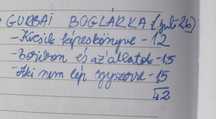 GURBAI BOGLÁRKA (juli 26)
- Kicsik képeskönyve - 12
- Boribon és az állatok - 15
- Aki nem lép egyszerre - 15
42